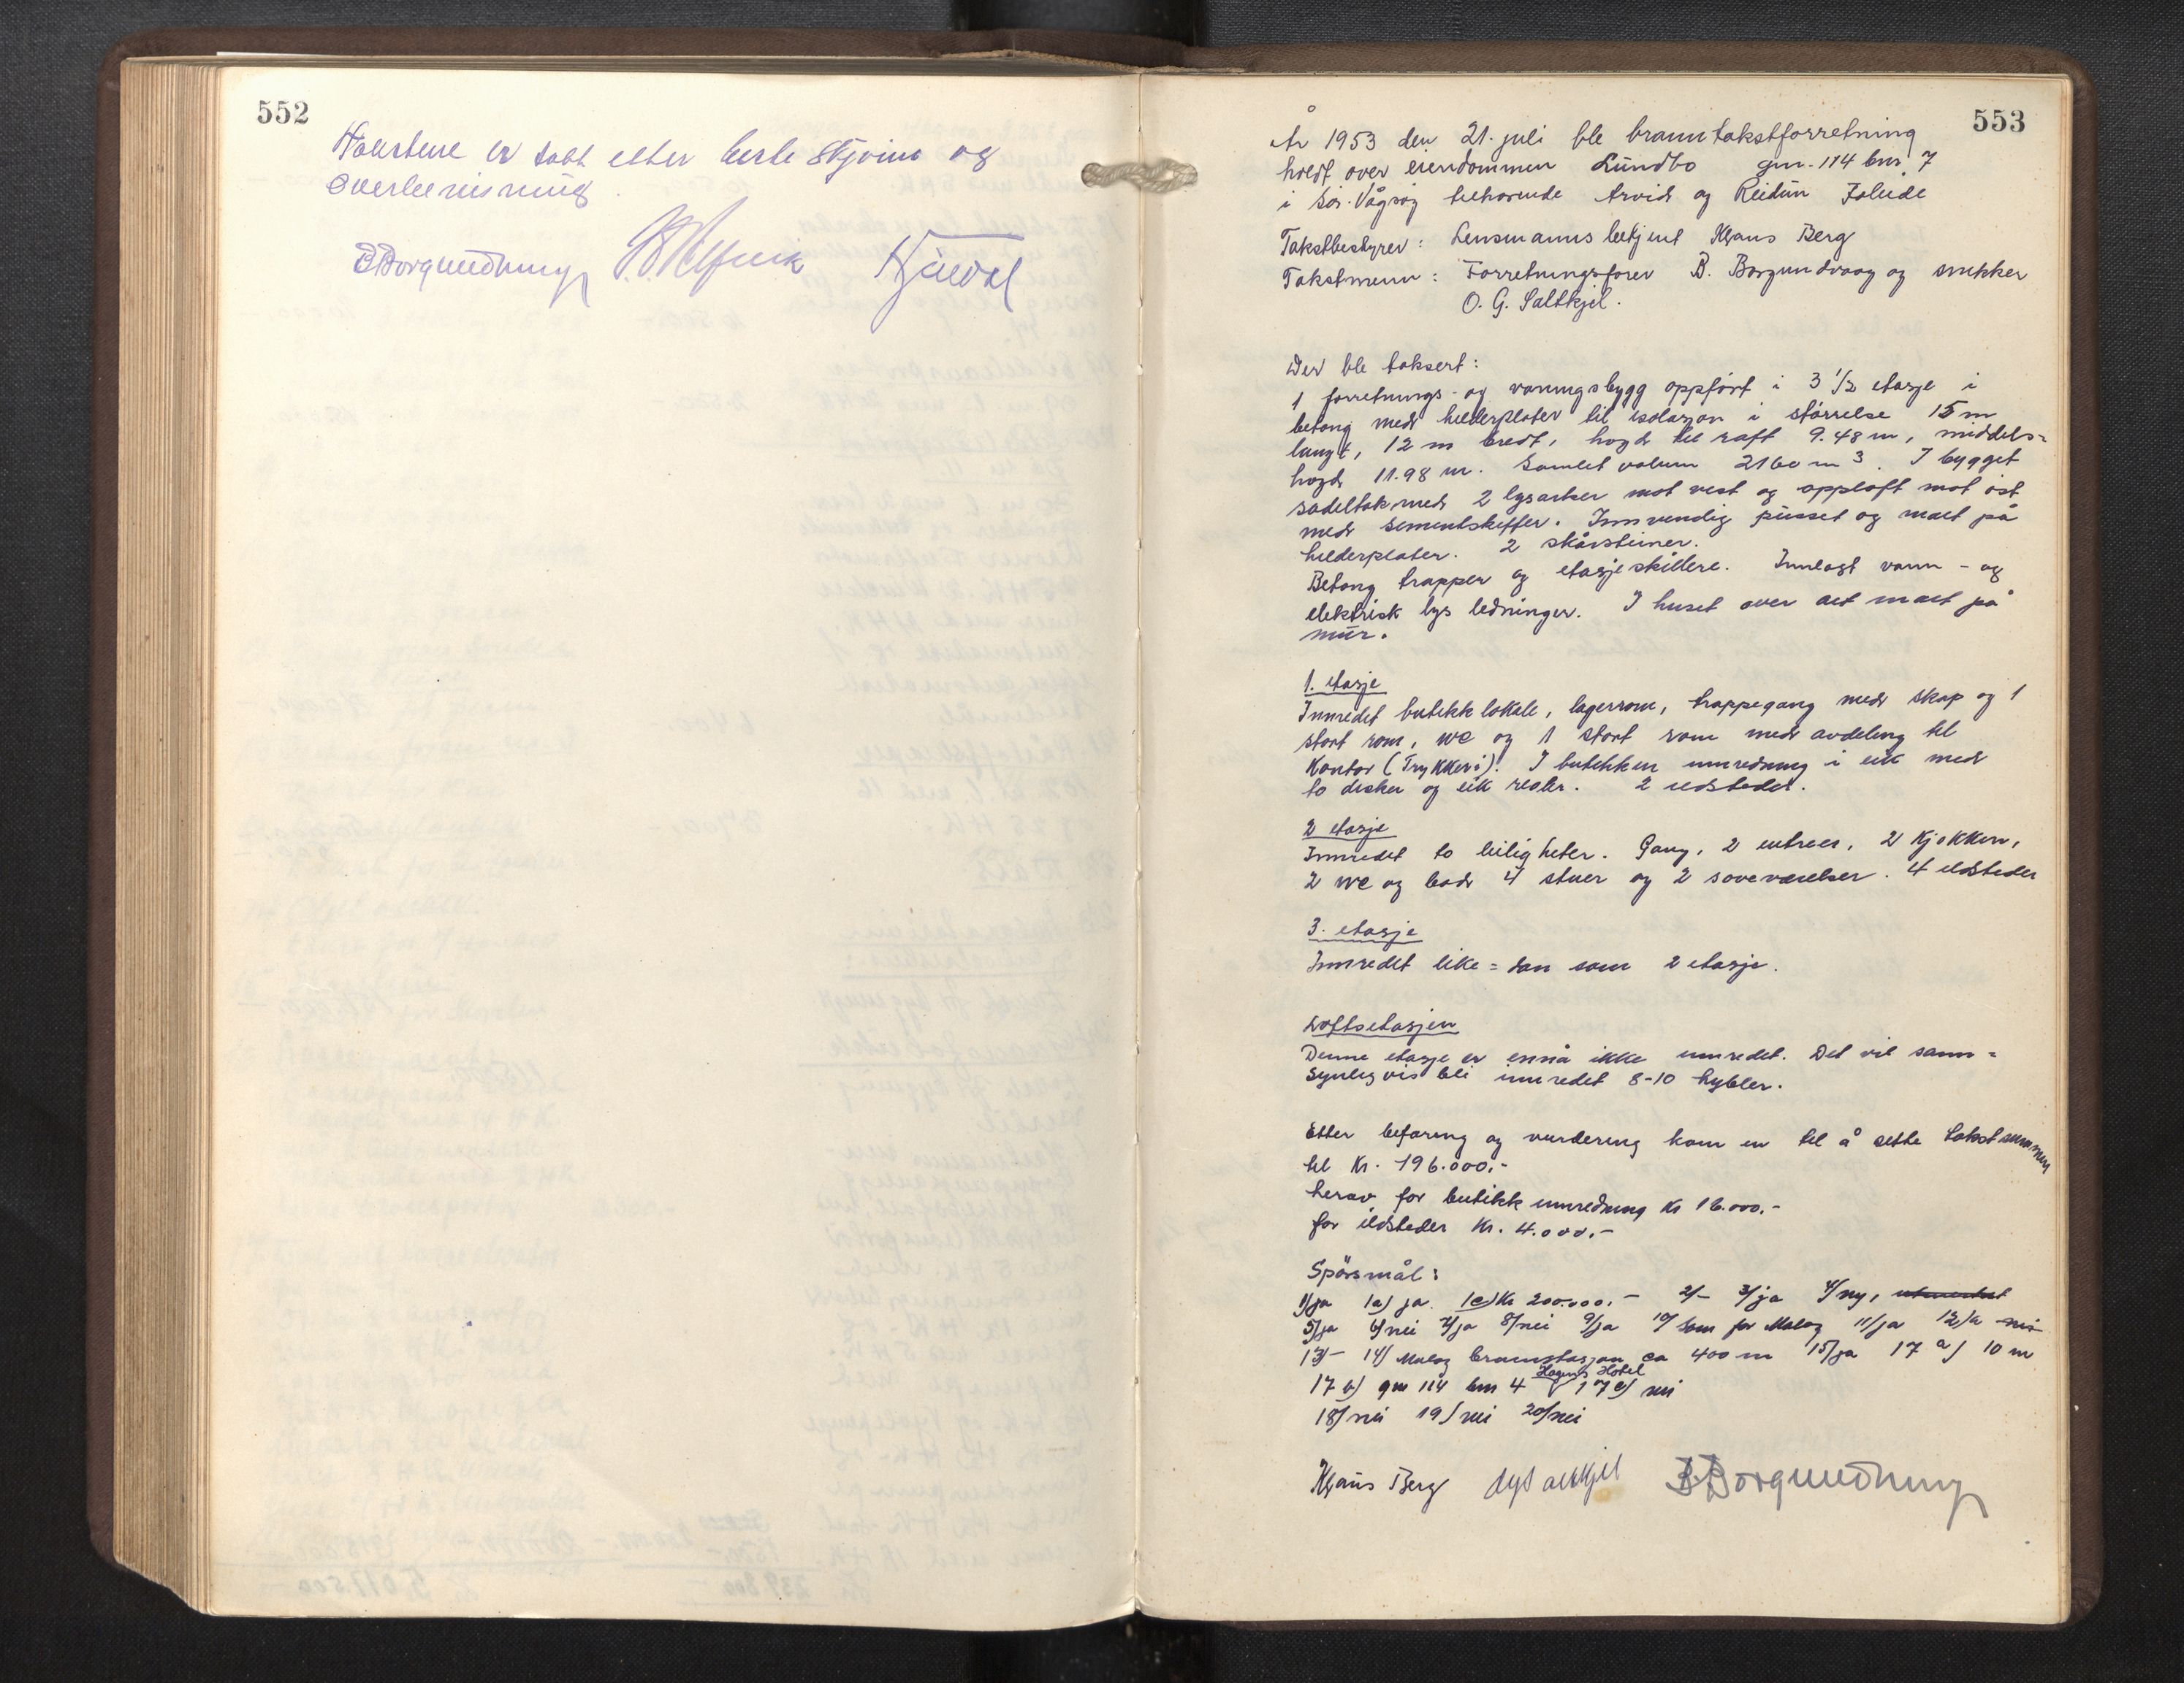 552
er satt etter beste skjønn og
overbevisning
553
År 1953 den 21. juli ble branntakstforretning
holdt over eiendommen Lundbo gnr. 114 bnr. 7
i Sør-Vågsøy tilhørende Arvid og Reidun
Takstbestyrer: Lensmannsbetjent Hans Berg
Takstmenn: Forretningsfører B. Borgundvaag og snekker
O. G. Saltkjel.
Der ble taksert:
1 forretnings- og våningsbygg oppført i 3 1/2 etasje i
betong med hellderplater til isolasjon i størrelse 15 m
langt, 12 m bredt, høgd til raft 9.48 m, middels-
høgd 11.98 m. Samlet volum 2160 m3. I bygget
sadeltak med 2 lysarker mot vest og opploft mot øst
med sementskiffer. Innvendig pusset og malt på
hellderplater. 2 skårsteiner.
Betong trapper og etasjeskillere. Innlagt vann- og
elektrisk lys ledninger. I huset over alt malt på
mur.
1. etasje
Innredet butikklokale, lagerrom, trappegang med skap og 1
stort rom, WC og 1 stort rom med avdeling til
Kontor (Trykkeri). I butikken innredning i eik med
to disker og eik reoler. 2 ildsteder.
2 etasje
Innredet to leiligheter. Gang, 2 entreer, 2 kjøkken,
2 WC og bad 4 stuer og 2 soveværelser. 4 ildsteder
3. etasje
Innredet like=dan som 2 etasje.
Loftsetasjen
Denne etasje er ennå ikke innredet. Det vil sann=
synligvis bli innredet 8-10 hybler.
Etter befaring og vurdering kom en til å sette takstsummen
til Kr. 196.000.-
herav for butikkinnredning Kr 16.000.-
for ildsteder Kr. 4.000.-
Spørsmål:
1/ja 1a) ja. 1c) Kr 200.000.- 2/- 3/ja 4/ny,
5/ja 6/nei 7/ja 8/nei 9/ja 10/ Som for Måløy 11/ja 12/a nei
13/- 14/ Måløy brannstasjon ca 400 m 15/ja 17 a/ 10 m
Hagens Hotel
17 b) gnr 114 bnr 4 17c) nei
18/nei 19/nei 20/nei
Hans Berg OGSaltkjel BBorgundvaag